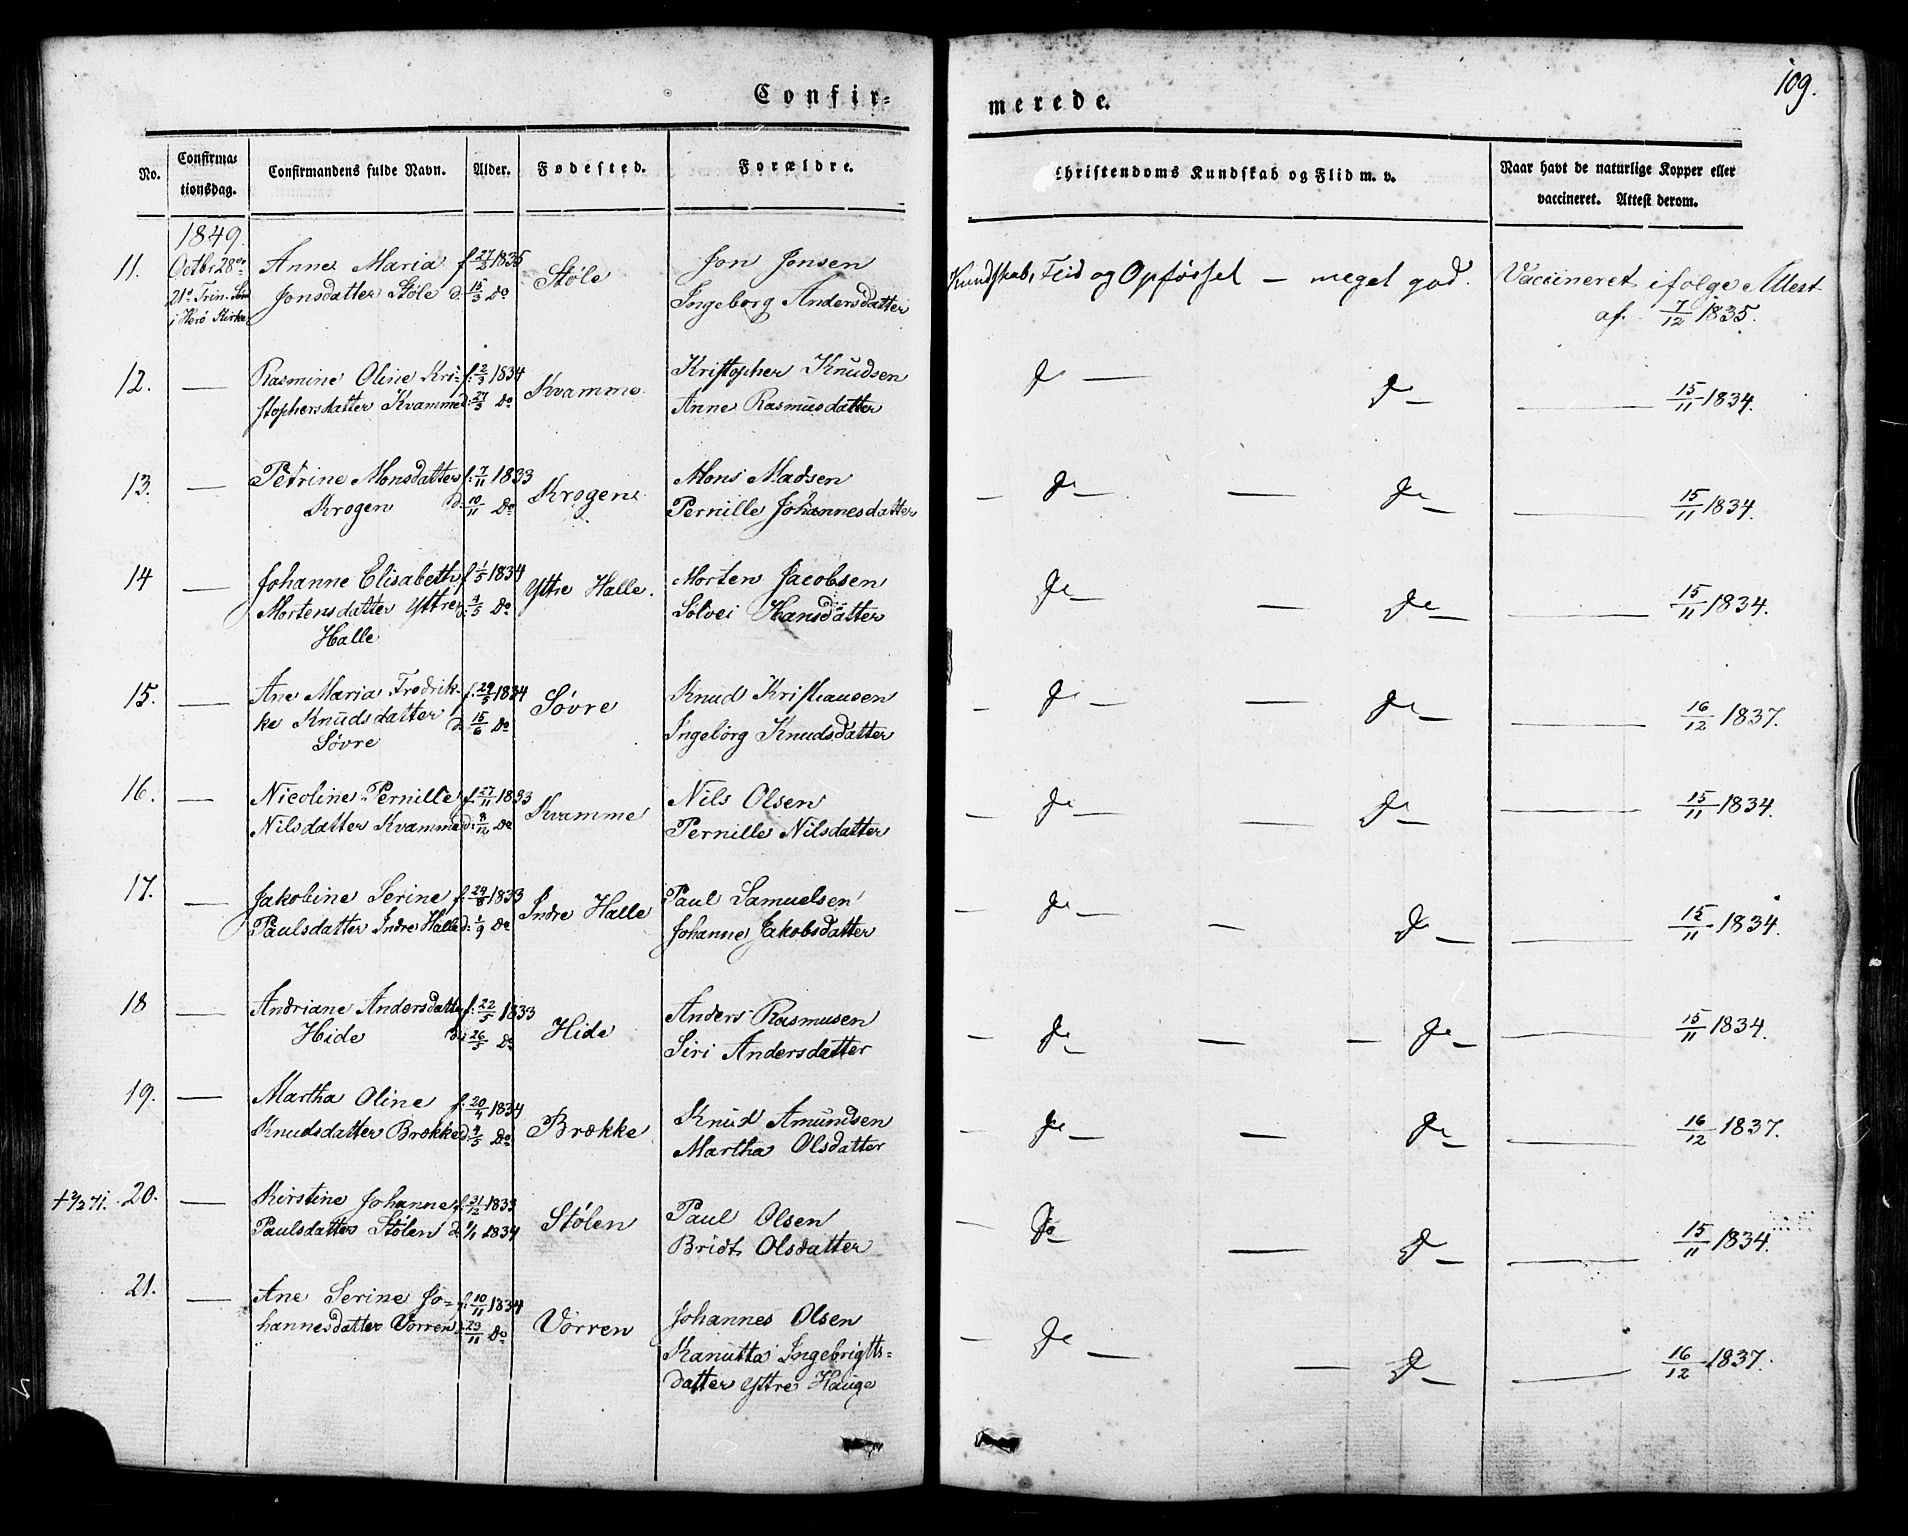 109.
Confir-
merede.
No.
Confirma-
tionsdag.
Confirmandens fulde Navn.
Alder.
Fødested.
Forældre.
Christendoms Kundskab og Flid m. v.
Naar havt de naturlige Kopper eller
vaccineret. Attest derom.
1849.
11.
Octbr 28de
21de Trin. Sønd
i Herø Kirke
Anne Maria
Jonsdatter Støle
f. 27/2 1835
d. 15/3 Do
Støle
Jon Jonsen
Ingeborg Andersdatter
Kundskab, Flid og Opførsel — meget god.
Vaccineret ifølge Attest
af. 7/12 1835.
12. —
Rasmine Oline Kri-
stophersdatter Kvamme
f. 2/3 1834
d. 27/3 Do
Kvamme
Kristopher Knudsen
Anne Rasmusdatter
Do — Do —
— 15/11 1834.
13. —
Petrine Monsdatter
Krogen
f. 7/11 1833
d. 10/11 Do
Krogen
Mons Madsen
Pernille Johannesdatter
— Do — — Do —
— 15/11 1834.
14 —
Johanne Elisabeth
Mortensdatter Yttre
Halle
f. 1/5 1834
d. 4/5 Do
Yttre Halle.
Morten Jacobsen
Solvei Hansdatter
Do — — Do —
— 15/11 1834.
15. —
Ane Maria Fredrik-
ke Knudsdatter
Søvre
f. 29/5 1834
d. 15/6 Do
Søvre
Knud Kristiansen
Ingeborg Knudsdatter
— Do — — Do —
— 16/12 1837.
16. —
Nicoline Pernille
Nilsdatter Kvamme
f. 27/11 1833
d. 8/12 Do
Kvamme
Nils Olsen
Pernille Nilsdatter
— Do — — Do —
— 15/11 1834.
17. —
Jakobine Serine
Paulsdatter Indre Halle
f. 24/8 1833
d. 1/9 Do
Indre Halle
Paul Samuelsen
Johanne Jakobsdatter
— Do — — Do —
— 15/11 1834.
18 —
Andriane Andersdatter
Hide
f. 22/5 1833
d. 26/5 Do
Hide
Anders Rasmusen
Siri Andersdatter
— Do — — — Do —
— 15/11 1834.
19. —
Martha Oline
Knudsdatter Brække
f. 20/4 1834
d. 4/5 Do
Brække
Knud Amundsen
Martha Olsdatter
— Do — — Do —
— 16/12 1837.
20. —
Kirstine Johanne
Paulsdatter Stølen
f. 21/12 1833
d. 1/1 1834
Stølen
Paul Olsen
Bridt Olsdatter
— Do — — Do —
— 15/11 1834.
21. —
Ane Serine Jo-
hannesdatter Vorren
f. 10/11 1834
d. 23/11 Do
Vorren
Johannes Olsen
Kanutta Ingebrigtts-
datter Yttre Hauge
— Do — — Do —
— 16/12 1837.